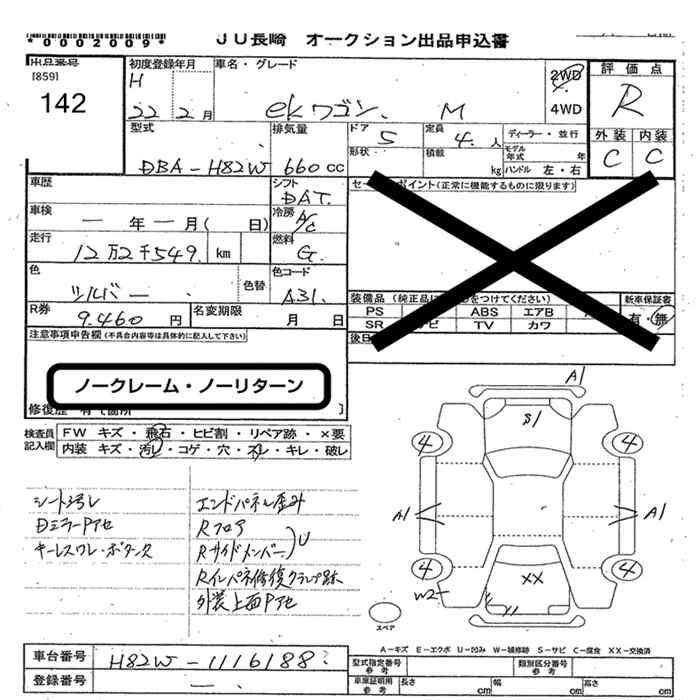 *0002009*
JU長崎 オークション出品申込書
出品番号
[859]
142
初度登録年月
H
22 2月
車名・グレード
ekワゴン. M
2WD
4WD
評価点
R
型式
DBA-H82W
排気量
660cc
ドア
5
定員
4.人
ディーラー・並行
形状
積載
kg
モデル年式 年
ハンドル 左・右
外装 内装
C C
車歴
シフト
DAT.
セールスポイント(正常に機能するものに限ります)
車検
一 年 一 月( 日)
冷房
A/C
走行
12万2千549. km
燃料
G.
色
シルバー.
色替
色コード
A31.
装備品
新車保証書
有・無
PS ABS エアB
SR TV カワ
R券
9.460 円
名変期限 月 日
注意事項申告欄(不具合内容等は具体的に記入して下さい)
ノークレーム・ノーリターン
修復歴 有 て箇所 ]
検査員記入欄
FW キズ・飛石・ヒビ割・リペア跡・×要
内装 キズ・汚レ・コゲ・穴・スレ・キレ・破レ
シート汚レ
DミラーPアセ
キーレスワレ・ボタンヌケ
エンドパネル歪み
Rフロア
Rサイドメンバー
U
Rインパネ修復クランプ跡
外装上面Pアセ
A1
S1
4 4
A1 A1
4 4
W2
XX
U
スペア
A-キズ E-エクボ U-凹み W-補修跡 S-サビ C-腐食 XX-交換済
車台番号
H82W-1116188
登録番号
一.
型式指定番号 参考
類別区分番号 参考
車庫証明用 参考
長さ cm
幅 cm
高さ cm